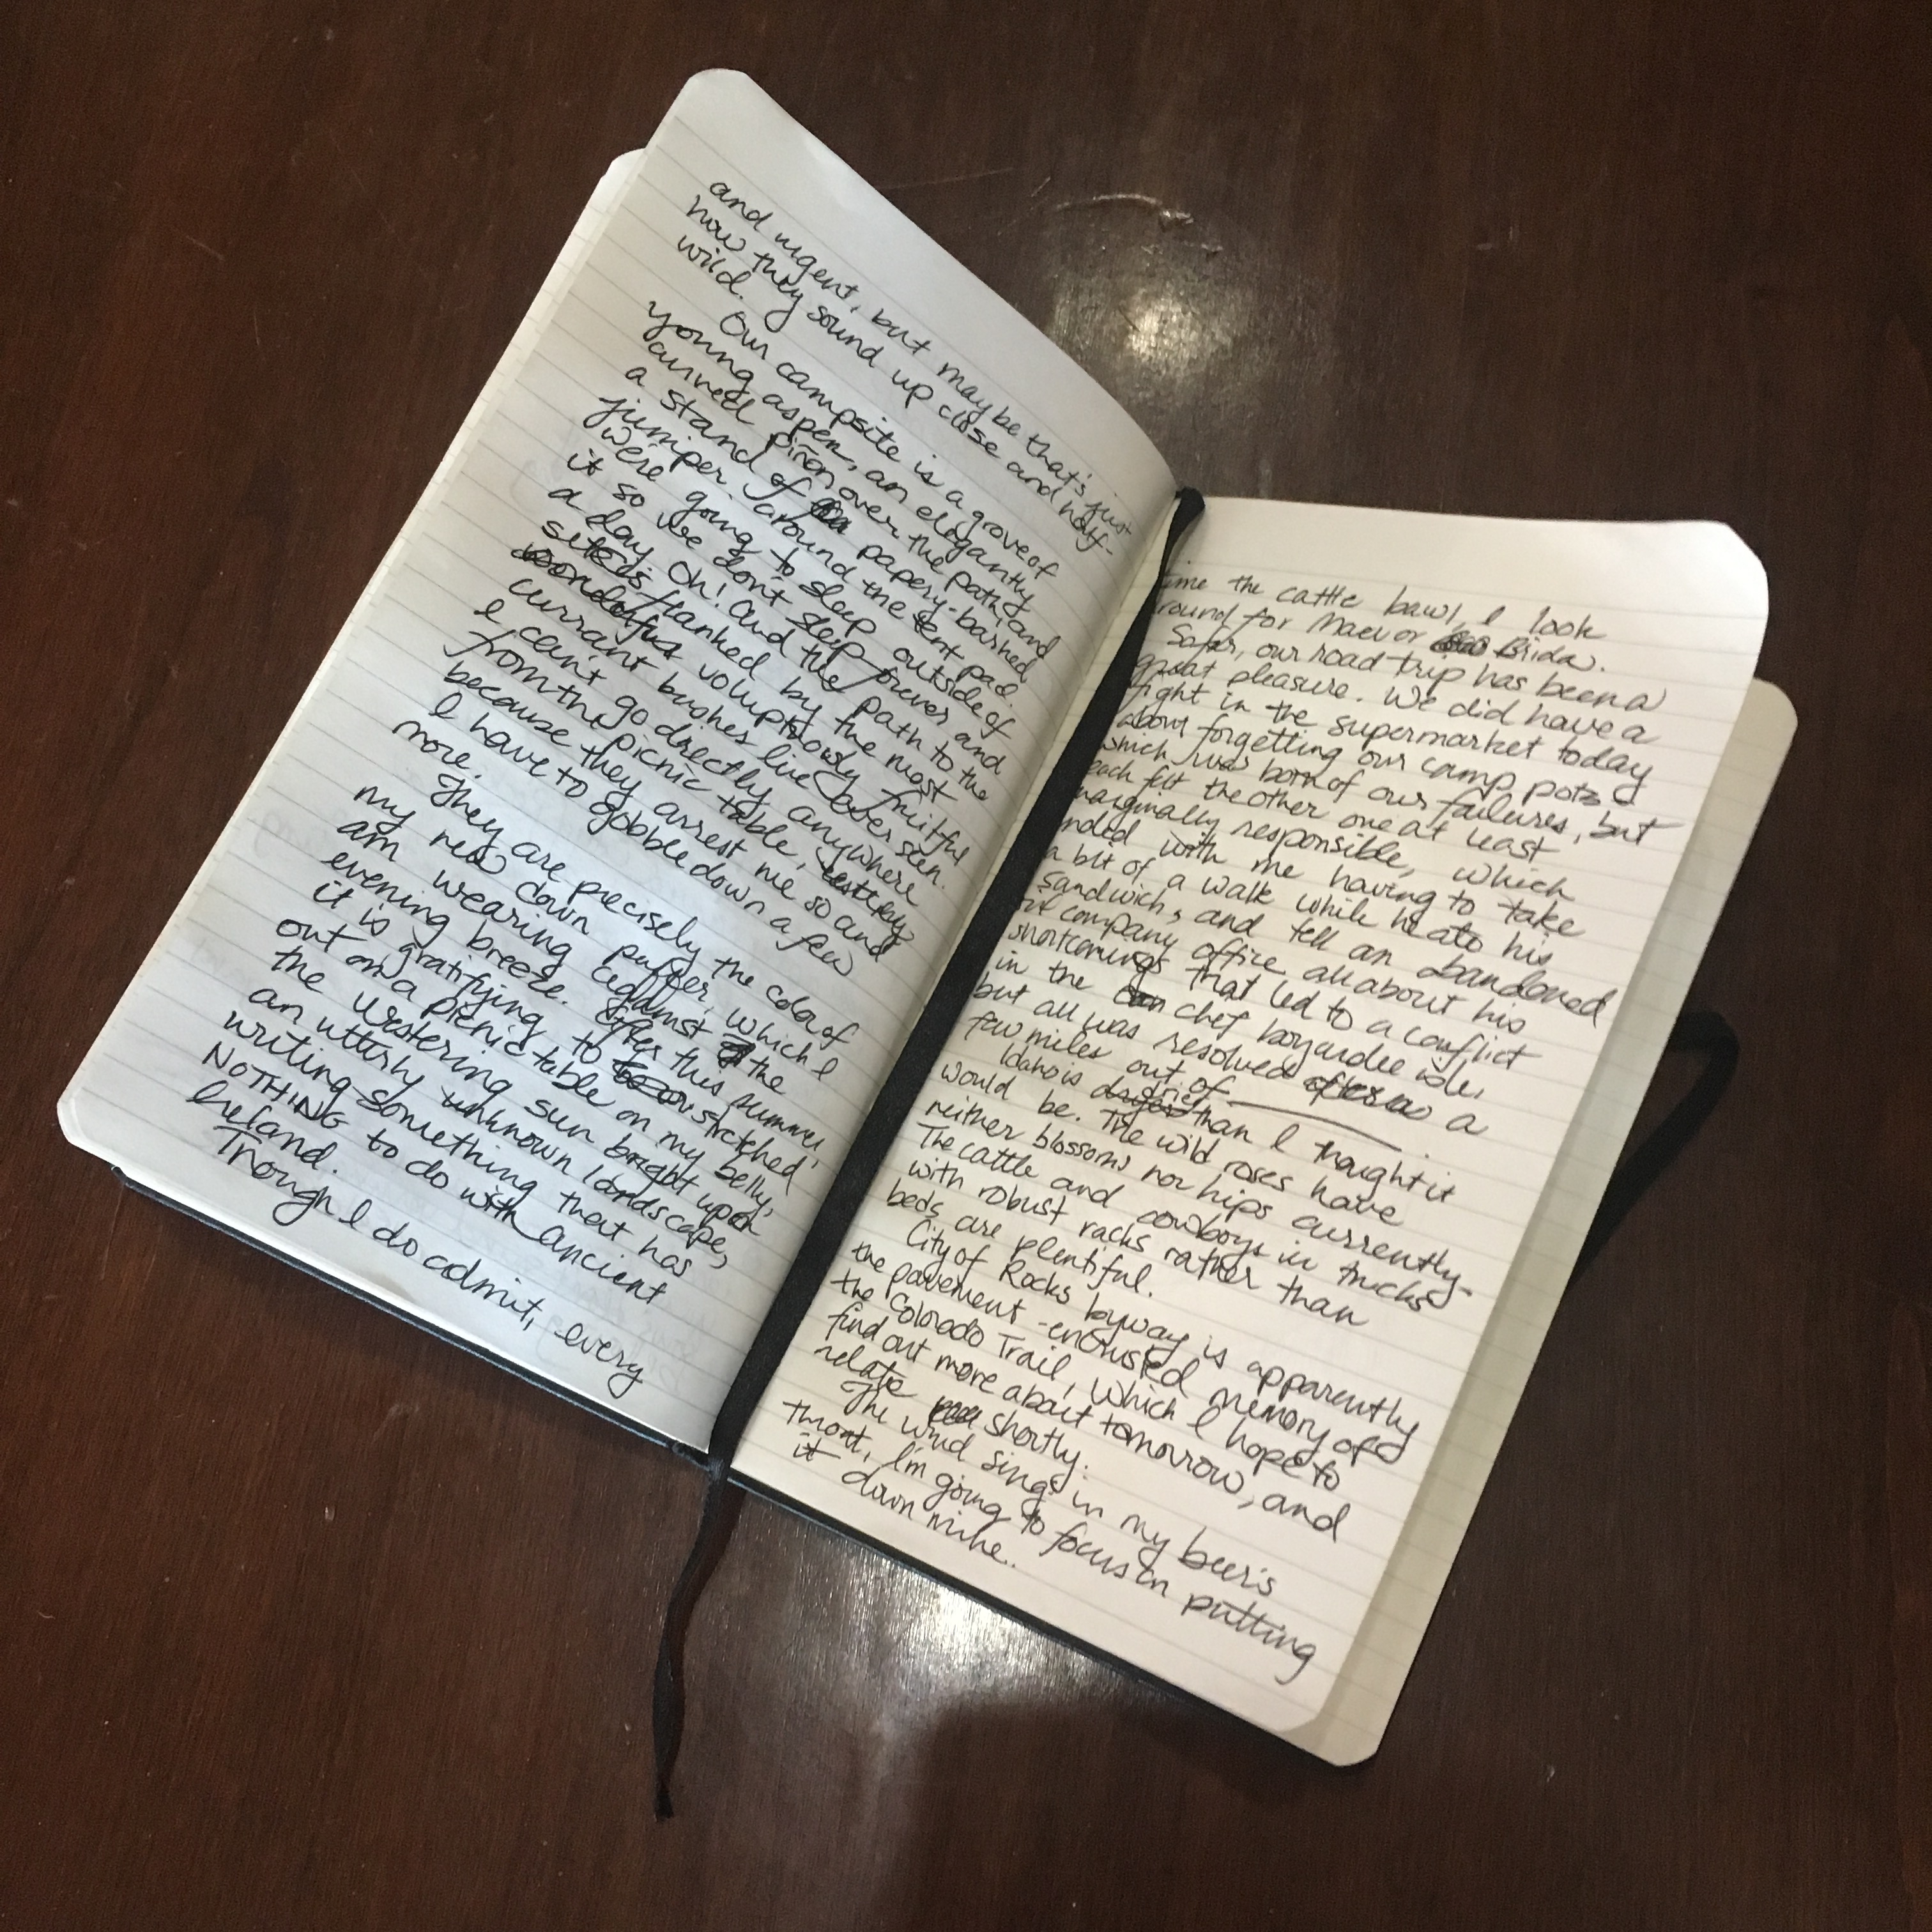 and urgent, but maybe that's just
how they sound up close and half-
wild.
Our campsite is a grove of
young aspen, an elegantly
curved piñon over the path, and
a stand of papery-barked
juniper around the tent pad.
We're going to sleep outside of
it so we don't sleep forever and
a day. Oh! And the path to the
site is flanked by the most
wonderful voluptuously fruitful
currant bushes I've ever seen.
I can't go directly anywhere
from the picnic table,
because they arrest me so and
I have to gobble down a few
more.
They are precisely the color of
my new down puffer, which I
am wearing against the
evening breeze. After this summer,
it is gratifying to be stretched
out on a picnic table on my belly,
the westering sun bright upon
an utterly unknown landscape,
writing something that has
NOTHING to do with ancient
Ireland.
Though I do admit, every
time the cattle bawl, I look
round for Maev or Brida.
So far, our road trip has been a
great pleasure. We did have a
fight in the supermarket today
about forgetting our camp pots
which was both of our failures, but
each felt the other one at least
marginally responsible, which
ended with me having to take
a bit of a walk while he ate his
sandwich, and tell an abandoned
company office all about his
shortcomings that led to a conflict
in the chef boyardee isle,
but all was resolved after a
few miles out of
Idaho is drier than I thought it
would be. The wild roses have
neither blossoms nor hips currently.
The cattle and cowboys in trucks
with robust racks rather than
beds are plentiful.
City of Rocks byway is apparently
the pavement-encrusted memory of
the Colorado Trail, which I hope to
find out more about tomorrow, and
relate shortly.
The wind sings in my beer's
throat, I'm going to focus on putting
it down mine.